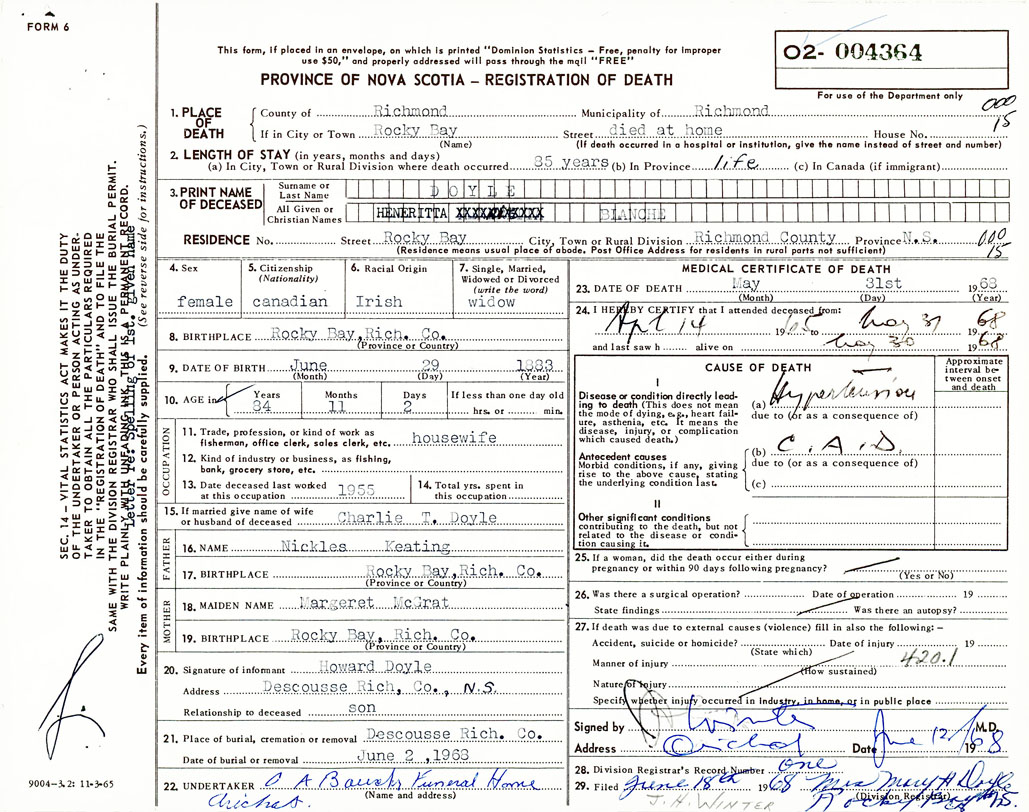 FORM 6
This form, if placed in an envelope, on which is printed "Dominion Statistics – Free, penalty for improper
use $50," and properly addressed will pass through the mail "FREE"
PROVINCE OF NOVA SCOTIA – REGISTRATION OF DEATH
02- 004364
For use of the Department only
000
15
1. PLACE OF DEATH
County of Richmond Municipality of Richmond
If in City or Town Rocky Bay Street died at home House No.
(Name) (If death occurred in a hospital or institution, give the name instead of street and number)
2. LENGTH OF STAY (in years, months and days)
(a) In City, Town or Rural Division where death occurred 85 years (b) In Province life (c) In Canada (if immigrant)
3. PRINT NAME OF DECEASED
Surname or Last Name DOYLE
All Given or Christian Names HENERITTA BLANCHE
RESIDENCE No. Street Rocky Bay City, Town or Rural Division Richmond County Province N.S. 000
15
(Residence means usual place of abode. Post Office Address for residents in rural parts not sufficient)
4. Sex
female
5. Citizenship
(Nationality)
canadian
6. Racial Origin
Irish
7. Single, Married,
Widowed or Divorced
(write the word)
widow
8. BIRTHPLACE Rocky Bay, Rich. Co.
(Province or Country)
9. DATE OF BIRTH June 29 1883
(Month) (Day) (Year)
10. AGE in Years Months Days If less than one day old
84 11 2 hrs. or min.
OCCUPATION
11. Trade, profession, or kind of work as
fisherman, office clerk, sales clerk, etc. housewife
12. Kind of industry or business, as fishing,
bank, grocery store, etc.
13. Date deceased last worked
at this occupation 1955
14. Total yrs. spent in
this occupation
15. If married give name of wife
or husband of deceased Charlie T. Doyle
FATHER
16. NAME Nickles Keating
17. BIRTHPLACE Rocky Bay, Rich. Co.
(Province or Country)
MOTHER
18. MAIDEN NAME Margeret McGrat
19. BIRTHPLACE Rocky Bay, Rich. Co.
(Province or Country)
20. Signature of informant Howard Doyle
Address Descousse Rich, Co., N.S.
Relationship to deceased son
21. Place of burial, cremation or removal Descousse Rich. Co.
Date of burial or removal June 2 ,1968
22. UNDERTAKER C A Bouch, Funeral Home
(Name and address)
Arichat.
MEDICAL CERTIFICATE OF DEATH
23. DATE OF DEATH May 31st 1968
(Month) (Day) (Year)
24. I HEREBY CERTIFY that I attended deceased from:
Apl 14 1965 to May 31 1968
and last saw h alive on May 30 1968
CAUSE OF DEATH
Approximate
interval be-
tween onset
and death
I
Disease or condition directly lead-
ing to death (This does not mean
the mode of dying, e.g., heart fail-
ure, asthenia, etc. It means the
disease, injury, or complication
which caused death.)
(a) Hypertension
due to (or as a consequence of)
Antecedent causes
Morbid conditions, if any, giving
rise to the above cause, stating
the underlying condition last.
(b) C. A. D.
due to (or as a consequence of)
(c)
II
Other significant conditions
contributing to the death, but not
related to the disease or condi-
tion causing it.
25. If a woman, did the death occur either during
pregnancy or within 90 days following pregnancy?
(Yes or No)
26. Was there a surgical operation? Date of operation 19
State findings Was there an autopsy?
27. If death was due to external causes (violence) fill in also the following: –
Accident, suicide or homicide? Date of injury 19
(State which)
Manner of injury 420.1
(How sustained)
Nature of Injury
Specify whether injury occurred in Industry, in home, or in public place
Signed by Winter M.D.
Address Arichat Date June 12/ 1968
28. Division Registrar's Record Number one
29. Filed June 18th 1968 Mrs Mary H Doyle
(Division Registrar)
J.H. WINTER
SEC. 14 – VITAL STATISTICS ACT MAKES IT THE DUTY
OF THE UNDERTAKER OR PERSON ACTING AS UNDER-
TAKER TO OBTAIN ALL THE PARTICULARS REQUIRED
IN THE "REGISTRATION OF DEATH" AND TO FILE THE
SAME WITH THE DIVISION REGISTRAR WHO SHALL ISSUE THE BURIAL PERMIT.
WRITE PLAINLY WITH UNFADING INK THIS IS A PERMANENT RECORD.
Letter re: Spelling of 1st. Given Name
Every item of information should be carefully supplied. (See reverse side for instructions.)
9004-3.2: 11-3-65